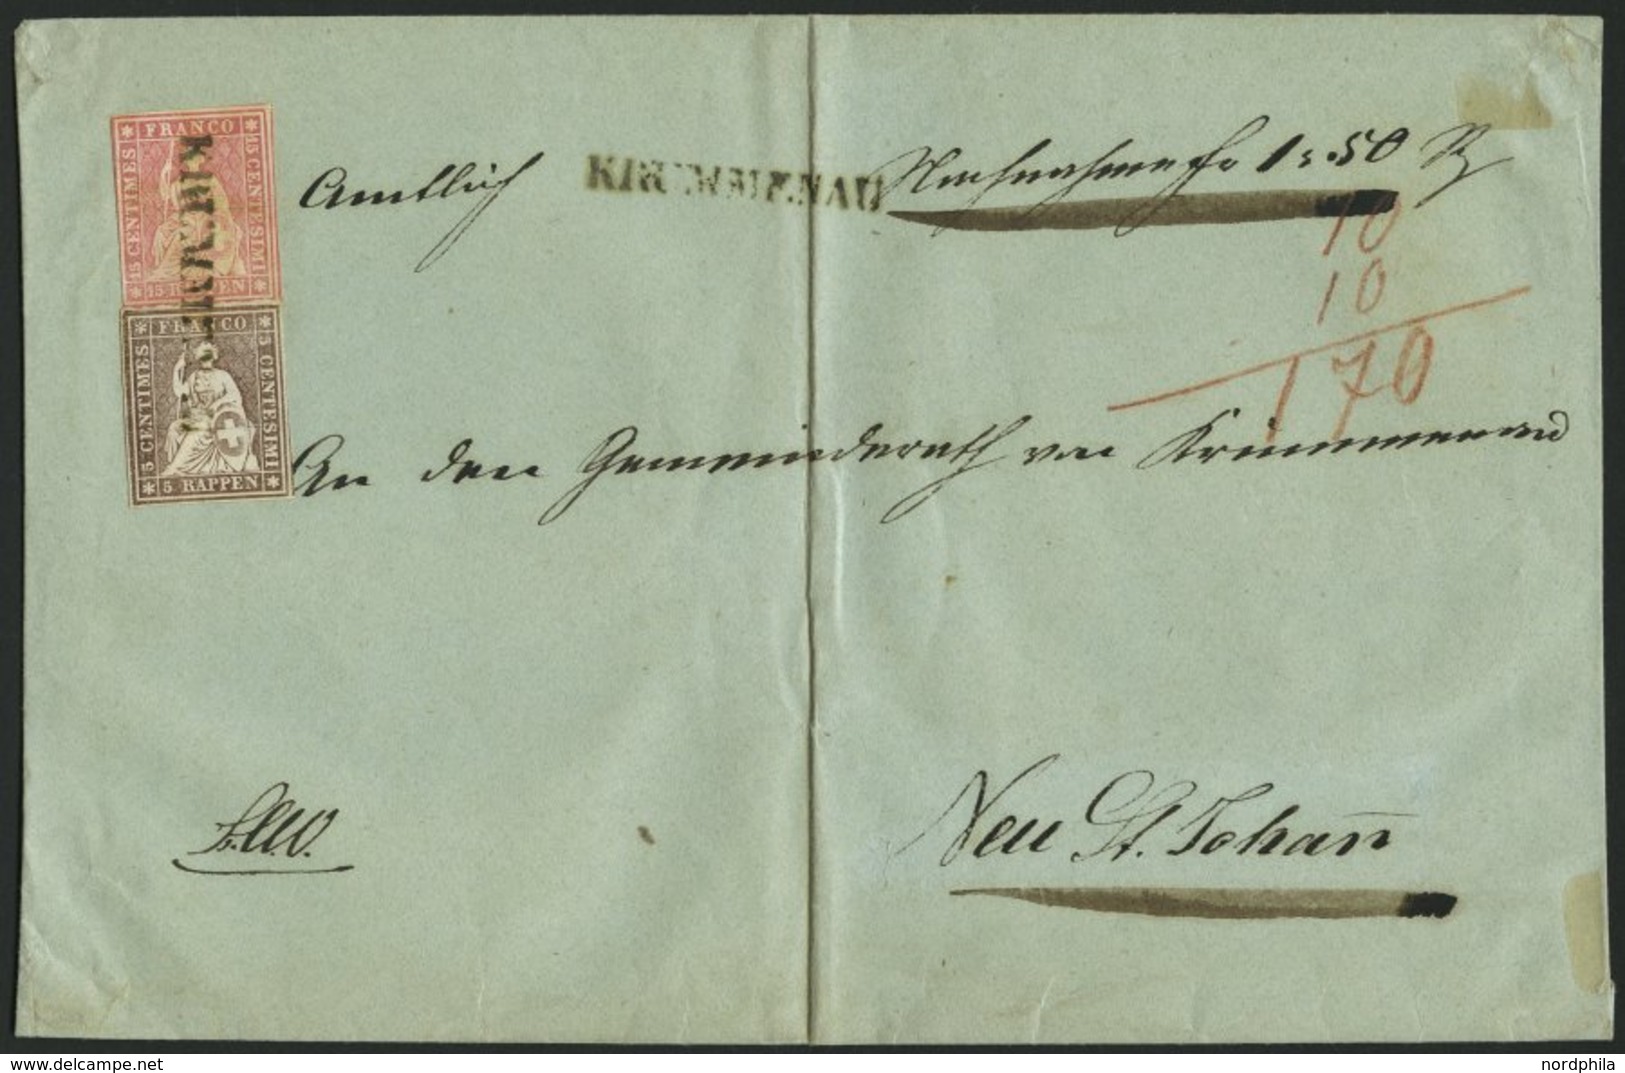 FRANCO
15 CENTIMES
15 CENTESIMI
15 RAPPEN
KRUMMENAU
FRANCO
5 CENTIMES
5 CENTESIMI
5 RAPPEN
Amtlich
KRUMMENAU
Nachnahme fr 1 : 50
10
10
170
An den Gemeinderath von Krummenau
Neu St. Johan̄
www.delcampe.net
nordphila